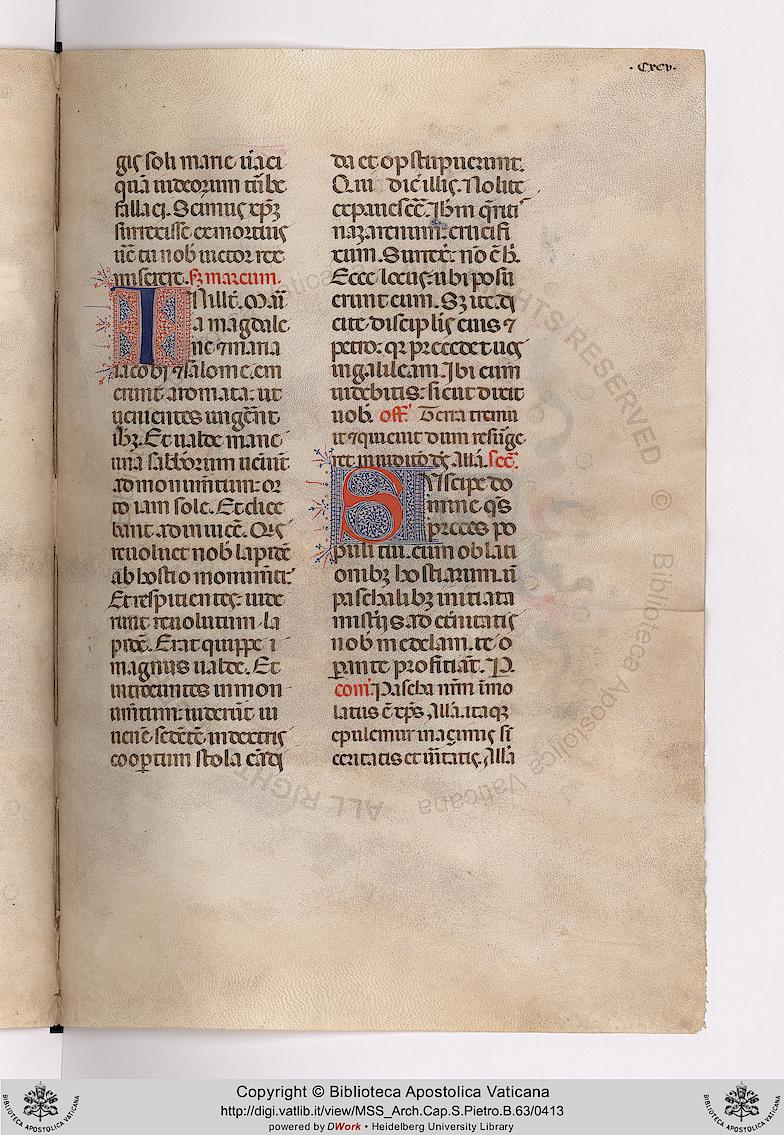 ·Cxcv·
gis soli marie ũaci
quã iudeorum tũbe
fallaci. Scimus xp̄ȝ
surrexisse ex mortuis
ue᷒ tu nob̾ uictor rex
miserere. sȝ marcum.
IN illo᷒. Mari
a magdale
ne ⁊ maria
iacobi ⁊ salome. em
erunt aromata. ut
uenientes ungeñt
ihȝ. Et ualde mane
una sabb̾orum ueniũt
ad monum̃tum: or
to iam sole. Et dice
bant ad inuicē. Q̾s
reuoluet nob̾ lapidē
ab hostio monum̃ti:
Et respitientes: uide
runt reuolutum la
pidē. Erat quippe
magnus ualde. Et
introeuntes in mon
um̃tum: uiderũt iu
uenē sedētē in dextris
coop̱tum stola cãdi
da et opstipuerunt.
Qui dic̃ illis. Nolite
expauescē. Ihm̄ q̃ritis
nazarenum: crucifi
xum. Surrex᷒: nō ē h̾.
Ecce locus: ubi posu
erunt eum. Sȝ ite. di
cite discip̾lis eius ⁊
petro: qr̾ precedet uos
in galileam. Ibi eum
uidebitis: sicut dixit
uob̾. off᷒ Terra tremu
it ⁊ quieuit dum resurge
ret in iudito d̄s. Alla̾. Sec̾.
SUscipe do
mine q̄s
preces po
puli tui. cum oblati
onibȝ hostiarum. ũ
paschalibȝ initiata
mist̾iis. ad et̾nitatis
nob̾ medelam. te o
p̱ante profitiãt. P̱
com᷒. Pascha nr̄m imo
latus ē xp̄s, Alla̾. itaqȝ
epulemur in açimis si
ceritatis et ũitatis. Alla̾
ALL RIGHTS RESERVED © Biblioteca Apostolica Vaticana
Copyright © Biblioteca Apostolica Vaticana
http://digi.vatlib.it/view/MSS_Arch.Cap.S.Pietro.B.63/0413
powered by DWork • Heidelberg University Library
BIBLIOTECA APOSTOLICA VATICANA
BIBLIOTECA APOSTOLICA VATICANA